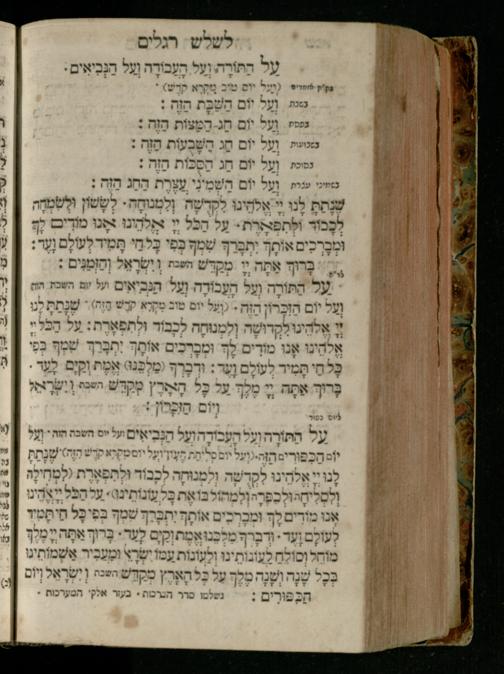 לשלש רגלים
עַל הַתּוֹרָה וְעַל הָעֲבוֹדָה וְעַל הַנְּבִיאִים·
(וְעַל יוֹם טוֹב מִקְרָא קֹדֶשׁ)·
בשבת וְעַל יוֹם הַשַּׁבָּת הַזֶּה:
בפסח וְעַל יוֹם חַג הַמַּצּוֹת הַזֶּה:
בשבועות וְעַל יוֹם חַג הַשָּׁבֻעוֹת הַזֶּה:
בסוכות וְעַל יוֹם חַג הַסֻּכּוֹת הַזֶּה:
בשמיני עצרת וְעַל יוֹם הַשְּׁמִינִי עֲצֶרֶת הַחַג הַזֶּה:
שֶׁנָּתַתָּ לָּנוּ יְיָ אֱלֹהֵינוּ לִקְדֻשָּׁה וְלִמְנוּחָה· לְשָׂשׂוֹן וּלְשִׂמְחָה
לְכָבוֹד וּלְתִפְאָרֶת· עַל הַכֹּל יְיָ אֱלֹהֵינוּ אָנוּ מוֹדִים לָךְ
וּמְבָרְכִים אוֹתָךְ יִתְבָּרַךְ שִׁמְךָ בְּפִי כָּל חַי תָּמִיד לְעוֹלָם וָעֶד:
בָּרוּךְ אַתָּה יְיָ מְקַדֵּשׁ השבת וְיִשְׂרָאֵל וְהַזְּמַנִּים:
עַל הַתּוֹרָה וְעַל הָעֲבוֹדָה וְעַל הַנְּבִיאִים ועל יום השבת הזה
וְעַל יוֹם הַזִּכָּרוֹן הַזֶּה· (וְעַל יוֹם טוֹב מִקְרָא קֹדֶשׁ הַזֶּה)· שֶׁנָּתַתָּ לָנוּ
יְיָ אֱלֹהֵינוּ לִקְדוּשָּׁה וְלִמְנוּחָה לְכָבוֹד וּלְתִפְאָרֶת: עַל הַכֹּל יְיָ
אֱלֹהֵינוּ אָנוּ מוֹדִים לָךְ וּמְבָרְכִים אוֹתָךְ יִתְבָּרַךְ שִׁמְךָ בְּפִי
כָּל חַי תָּמִיד לְעוֹלָם וָעֶד: וּדְבָרְךָ (מַלְכֵּנוּ) אֱמֶת וְקַיָּם לָעַד·
בָּרוּךְ אַתָּה יְיָ מֶלֶךְ עַל כָּל הָאָרֶץ מְקַדֵּשׁ השבת וְיִשְׂרָאֵל
וְיוֹם הַזִּכָּרוֹן:
ליום כפור
עַל הַתּוֹרָה וְעַל הָעֲבוֹדָה וְעַל הַנְּבִיאִים ועל יום השבת הזה· וְעַל
יוֹם הַכִּפּוּרִים הַזֶּה· (וְעַל יוֹם סְלִיחַת הֶעָוֹן וְעַל יוֹם מִקְרָא קֹדֶשׁ הַזֶּה) שֶׁנָּתַתָּ
לָנוּ יְיָ אֱלֹהֵינוּ לִקְדֻשָּׁה וְלִמְנוּחָה לְכָבוֹד וּלְתִפְאָרֶת (לִמְחִילָה
וְלִסְלִיחָה וּלְכַפָּרָה וְלִמְחוֹל בּוֹ אֶת כָּל עֲוֹנוֹתֵינוּ)· עַל הַכֹּל יְיָ אֱלֹהֵינוּ
אָנוּ מוֹדִים לָךְ וּמְבָרְכִים אוֹתָךְ יִתְבָּרַךְ שִׁמְךָ בְּפִי כָּל חַי תָּמִיד
לְעוֹלָם וָעֶד· וּדְבָרְךָ מַלְכֵּנוּ אֱמֶת וְקַיָּם לָעַד· בָּרוּךְ אַתָּה יְיָ מֶלֶךְ
מוֹחֵל וְסוֹלֵחַ לַעֲוֹנוֹתֵינוּ וְלַעֲוֹנוֹת עַמּוֹ יִשְׂרָאֵל וּמַעֲבִיר אַשְׁמוֹתֵינוּ
בְּכָל שָׁנָה וְשָׁנָה מֶלֶךְ עַל כָּל הָאָרֶץ מְקַדֵּשׁ השבת וְיִשְׂרָאֵל וְיוֹם
הַכִּפּוּרִים: נשלמו סדר הברכות· בעזר אלקי המערכות·